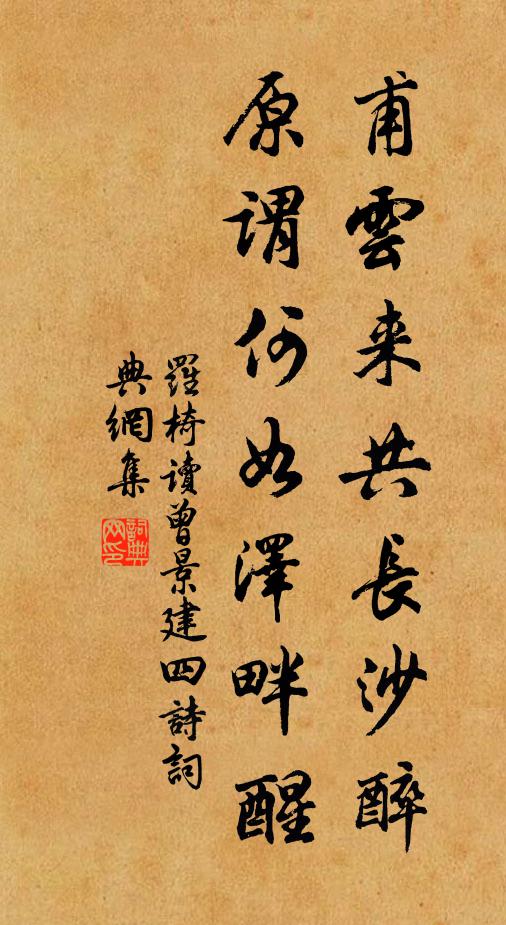 甫雲来共長沙醉
原謂何如澤畔醒
羅椅讀曾景建四詩詞
典網集
詞典網印